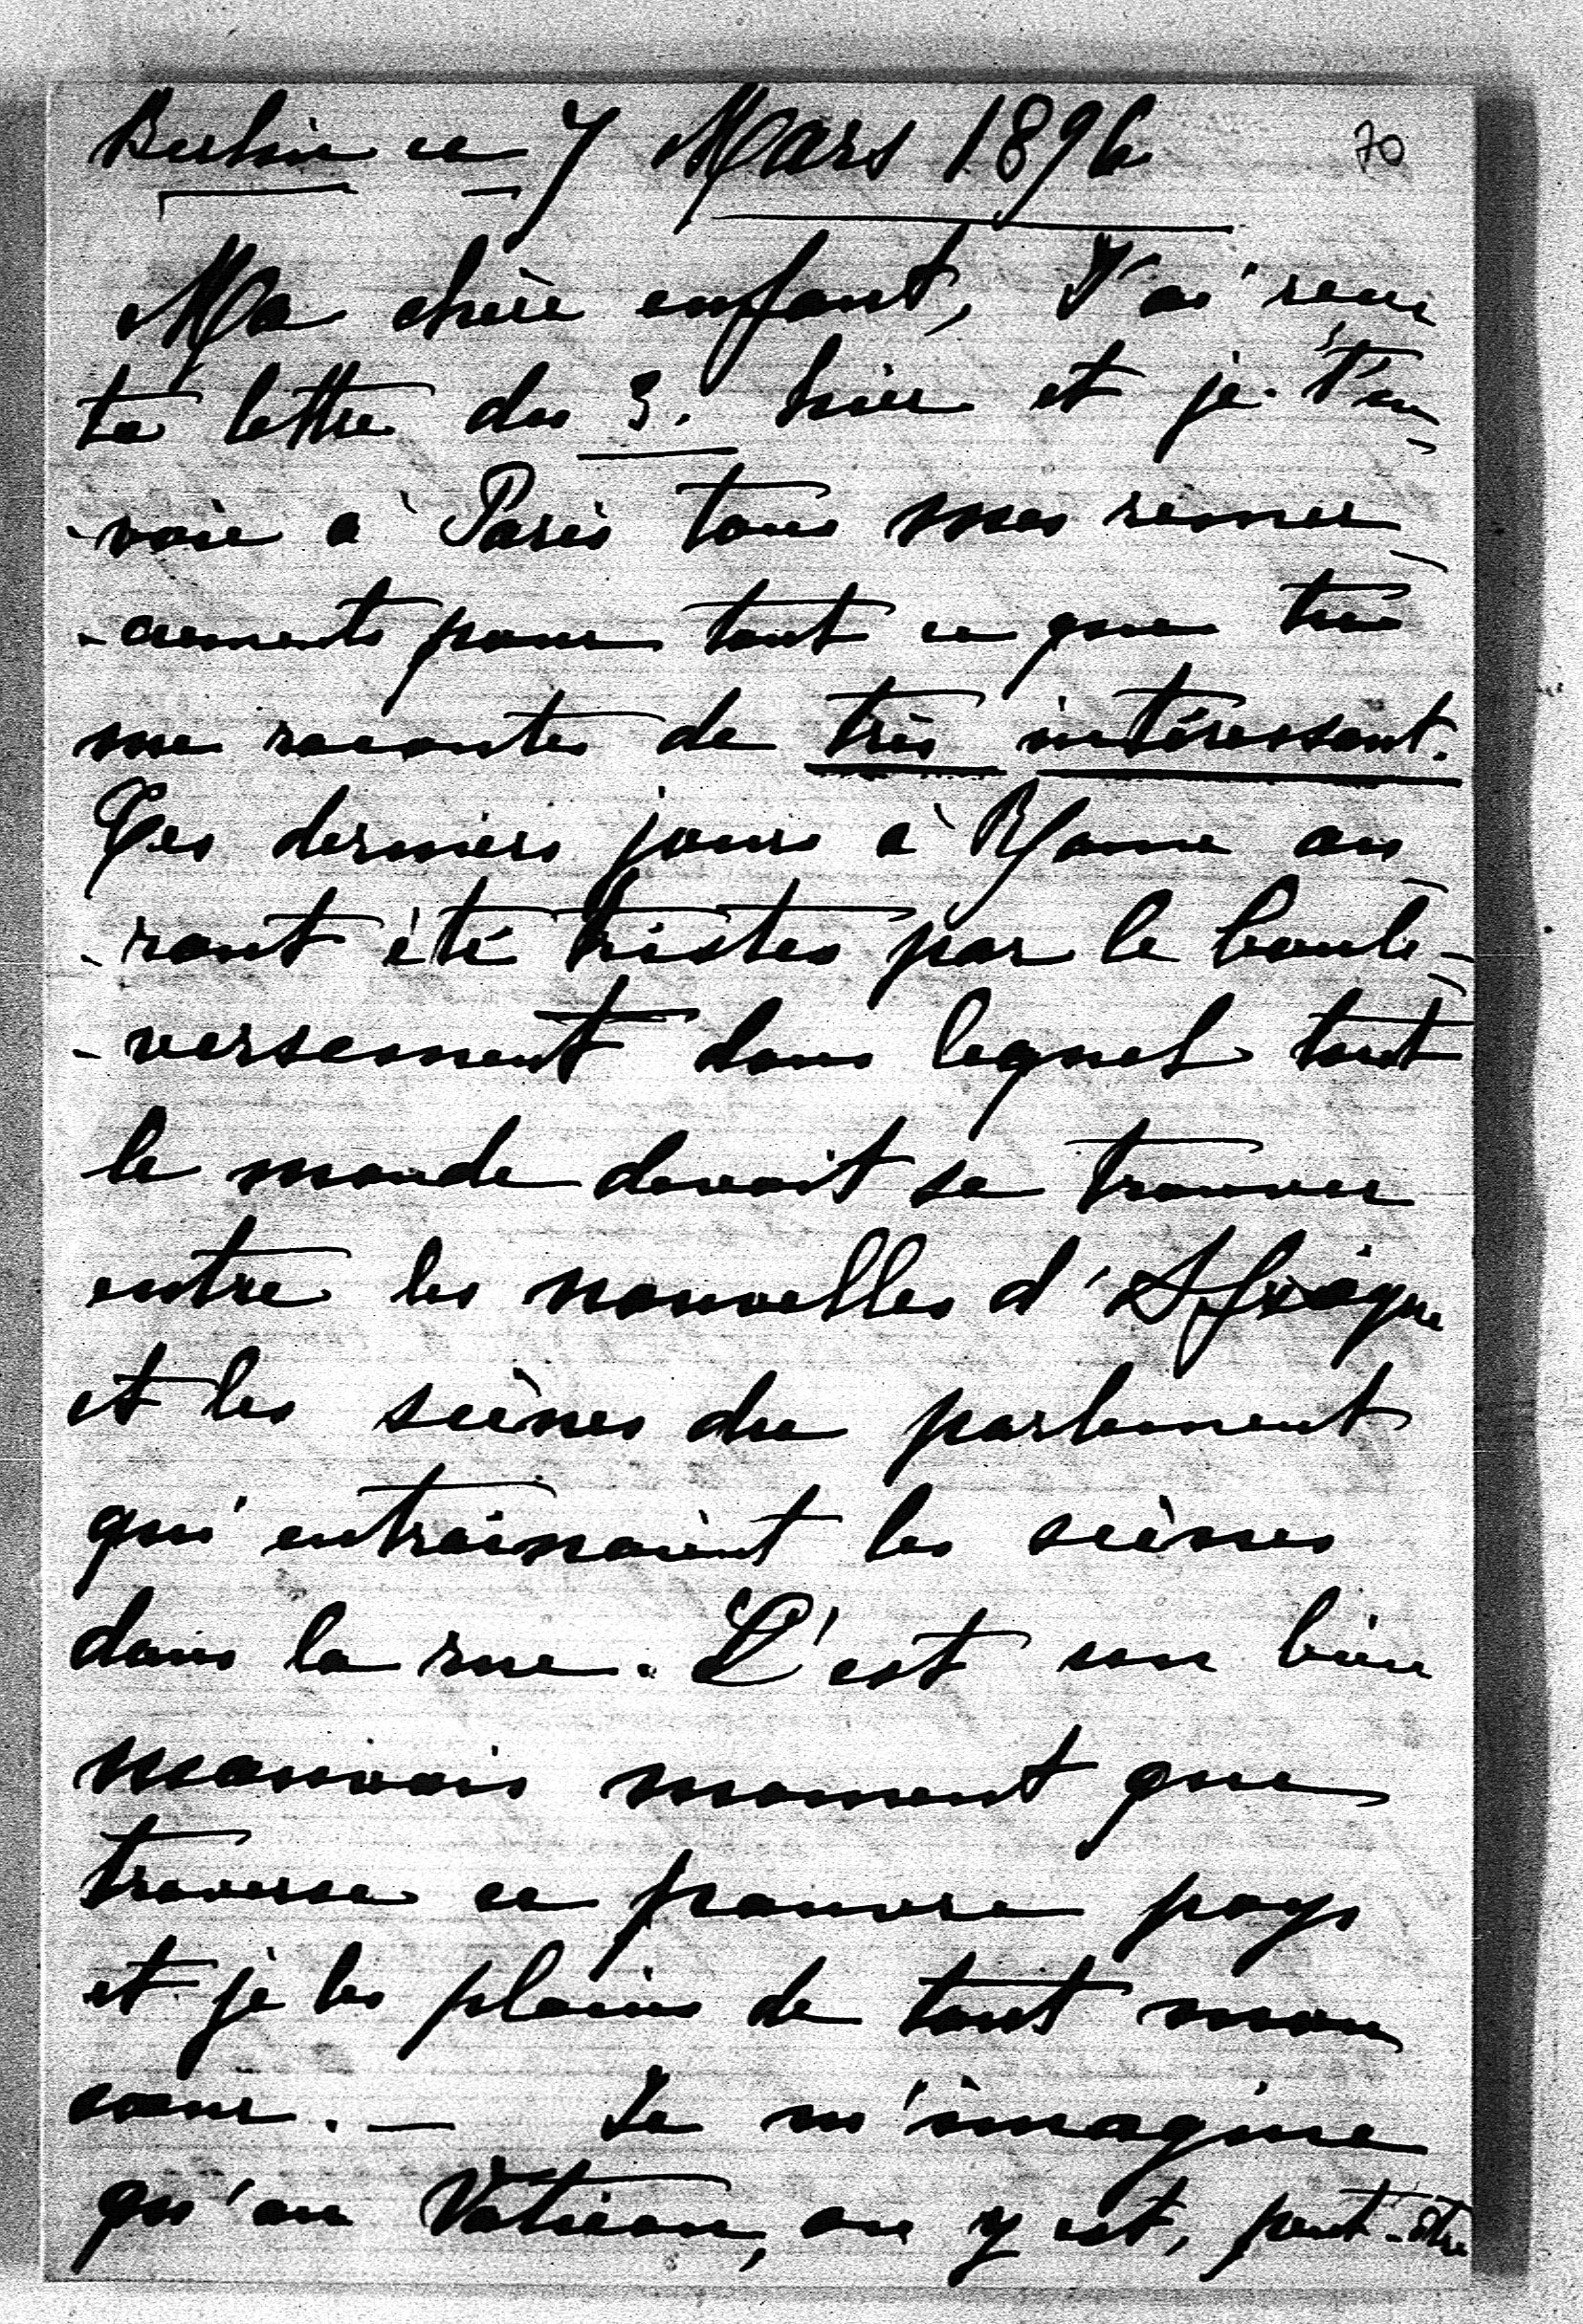 Berlin ce 7 Mars 1896
70
Ma chère enfant, J'ai reçu
ta lettre du 3. hier et je t'en-
-voie à Paris tous mes remer-
-ciements pour tout ce que tu
me racontes de très intéressant.
Tes derniers jours à Rome au-
-ront été tristes par le boule-
-versement dans lequel tout
le monde devait se trouver
entre les nouvelles d'Afrique
et les scènes du parlement
qui entrainaient les scènes
dans la rue. C'est un bien
mauvais moment que
traverse ce pauvre pays
et je les plains de tout mon
coeur. — Je m'imagine
qu'au Vatican, on y est, peut-être